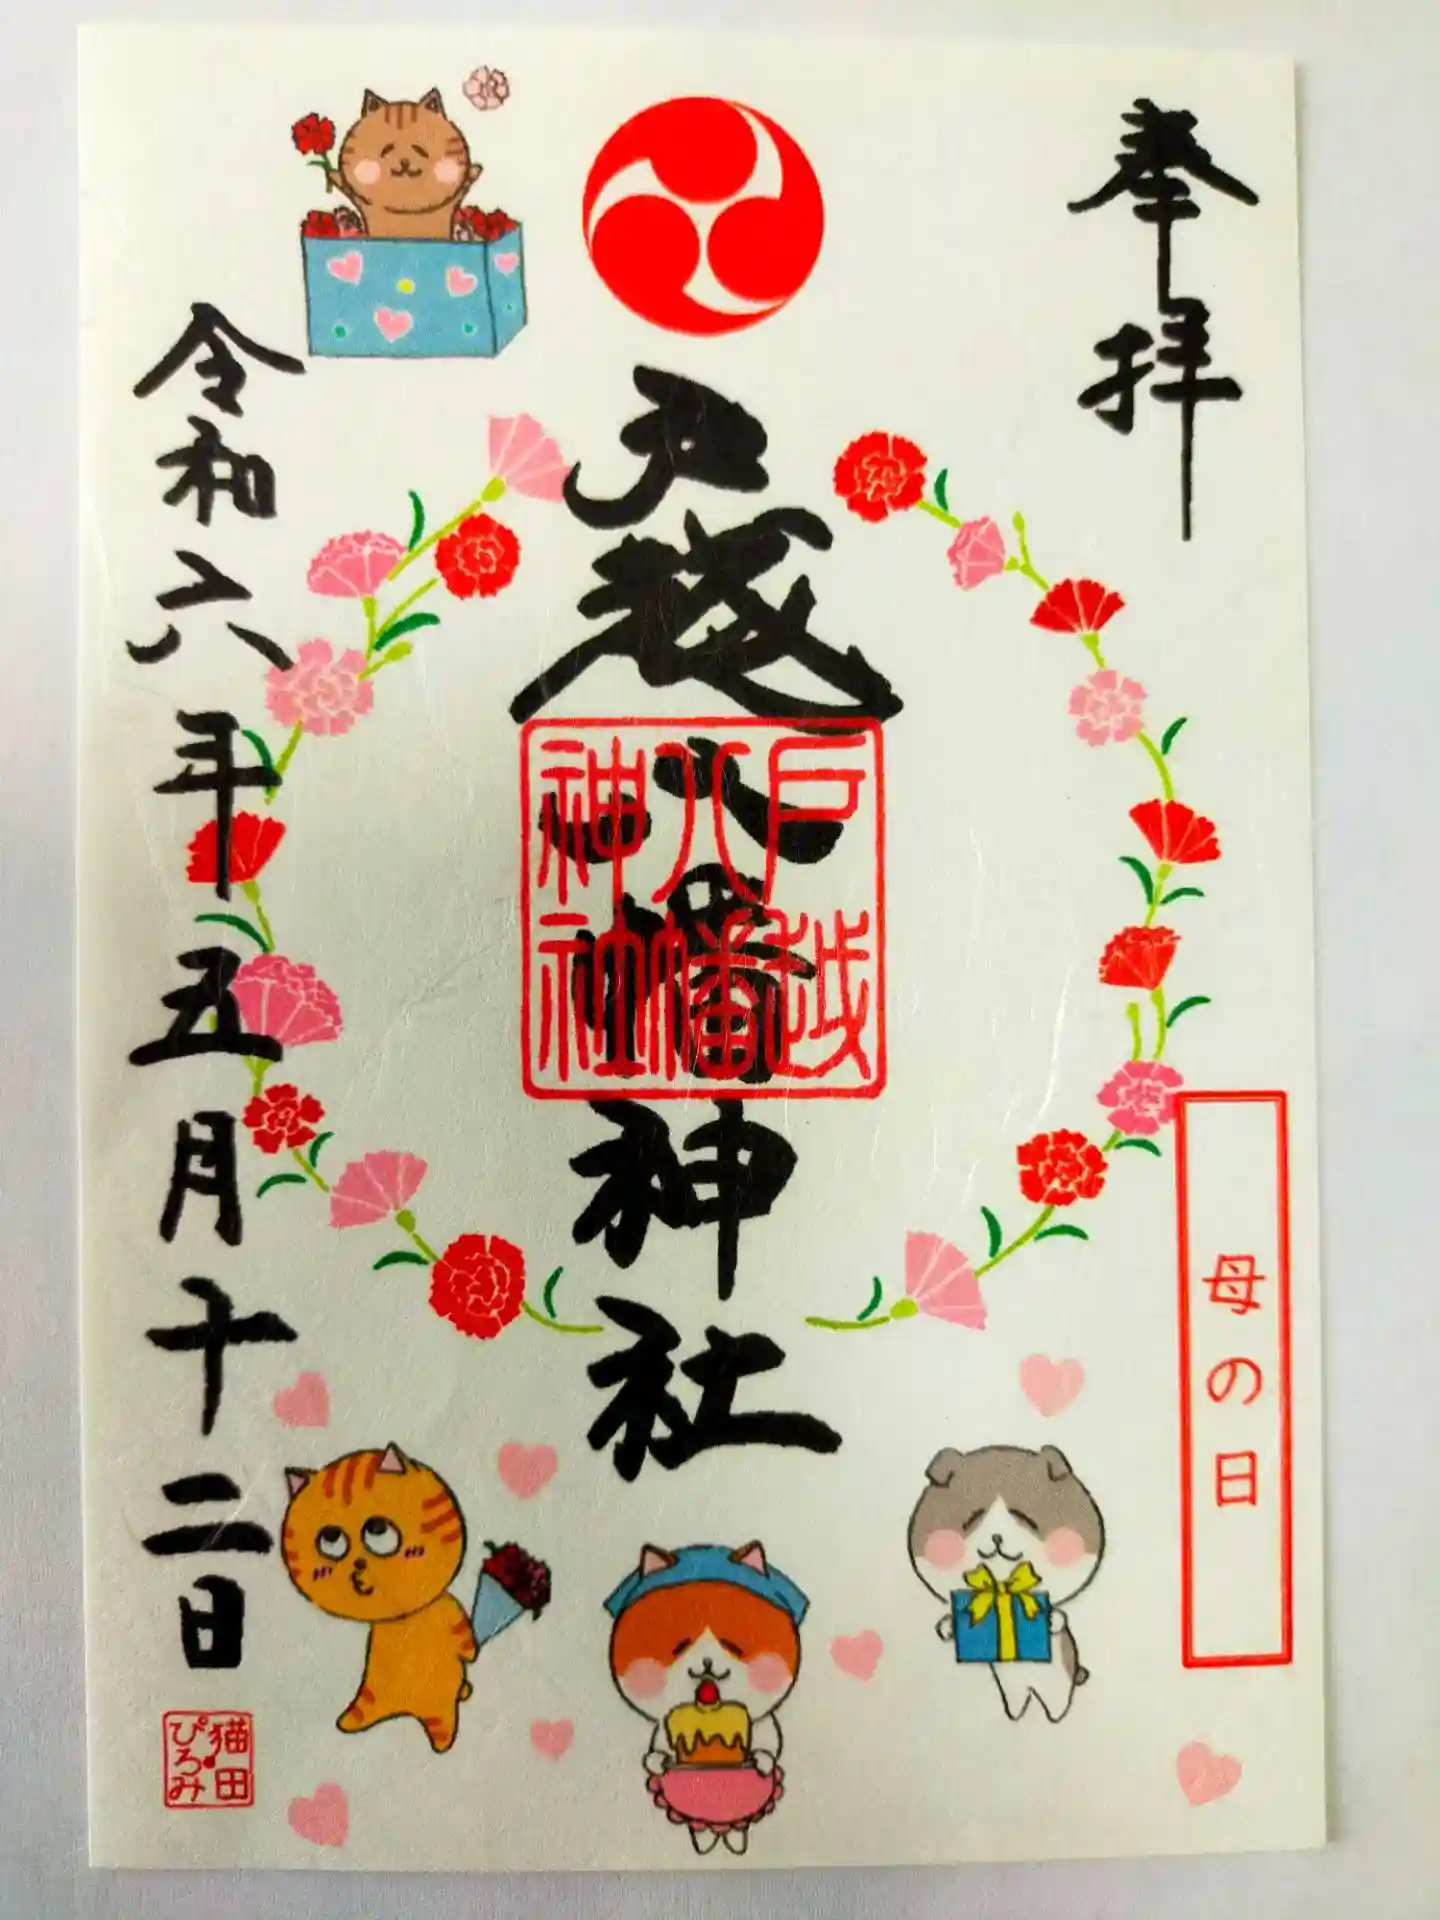 奉拝
母の日
戸越八幡神社
戸越
八幡
神社
令和六年五月十二日
猫田
ぴろみ